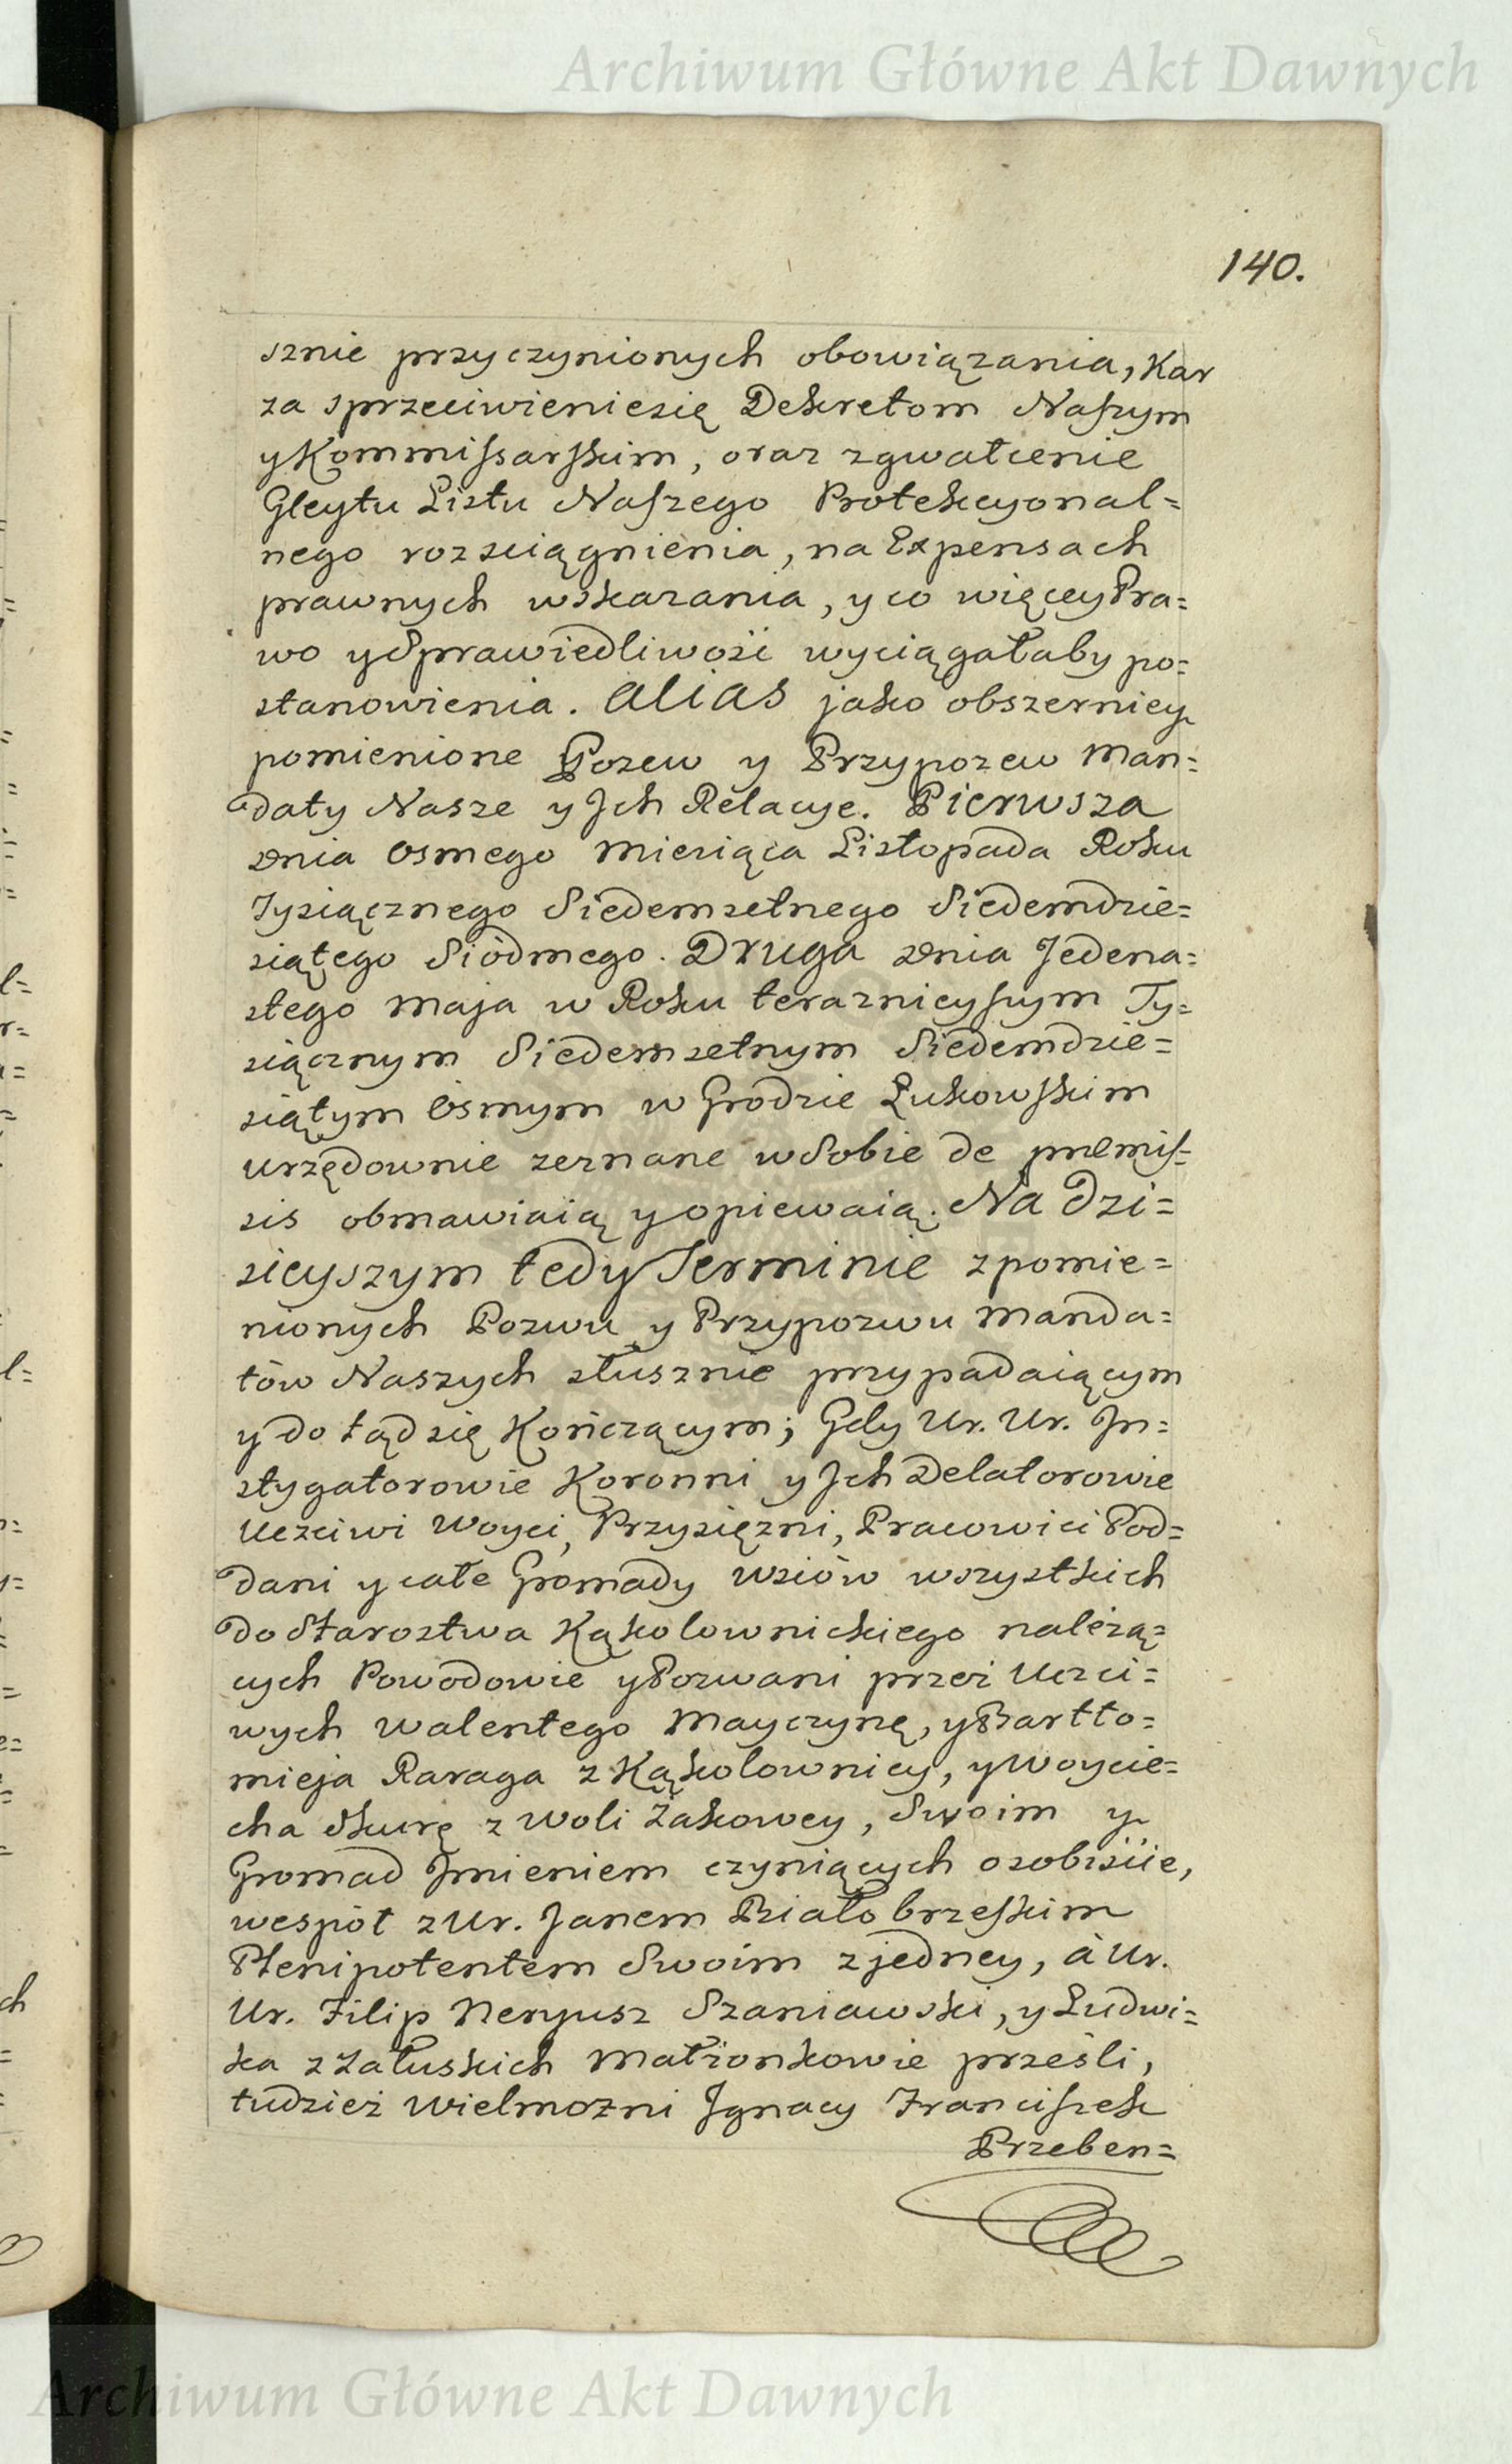 Archiwum Główne Akt Dawnych
140.
sznie przyczynionych obowiązania, Kar
za sprzeciwieniesię Dekretom Naszym
y Kommissarskim, oraz zgwałcenie
Gleytu Listu Naszego Protekcyonal=
nego rozsciągnienia, na Expensach
prawnych wskazania, y co więcey Pra=
wo y Sprawiedliwość wyciągałaby po=
stanowienia. Alias jako obszerniey
pomienione Pozew y Przypozew Man=
daty Nasze y Jch Relacye. Pierwsza
Dnia Osmego Miesiąca Listopada Roku
Tysiącznego Siedemsetnego Siedemdzie=
siątego Siódmego. Druga Dnia Jedena=
stego Maja w Roku teraznieyszym Ty=
siącznym Siedemsetnym Siedemdzie=
siątym Osmym w Grodzie Łukowskim
urzędownie zeznane w Sobie de præmis=
sis obmawiaią y opiewaią. Na Dzi=
sieyszym tedy Terminie z pomie=
nionych Pozwu y Przypozwu Manda=
tów Naszych słusznie przypadaiącym
y do tąd się Kończącym; Gdy Ur. Ur. In=
stygatorowie Koronni y Jch Delatorowie
Uczciwi Woyci, Przysięzni, Pracowici Pod=
dani y całe Gromady Wsiów wszystkich
do Starostwa Kąkolownickiego należą=
cych Powodowie y Pozwani przez Uczci=
wych Walentego Mayczynę, y Bartło=
mieja Raraga z Kąkolownicy, y Woycie=
cha Skurę z Woli Żakowey, Swoim y
Gromad Jmieniem czyniących osobiście,
wespół z Ur. Janem Białobrzeskim
Plenipotentem Swoim z jedney, à Ur.
Ur. Filip Neryusz Szaniawski, y Ludwi=
ka z Załuskich Małżonkowie prześli,
tudzież Wielmożni Jgnacy Franciszek
Przeben=
Archiwum Główne Akt Dawnych